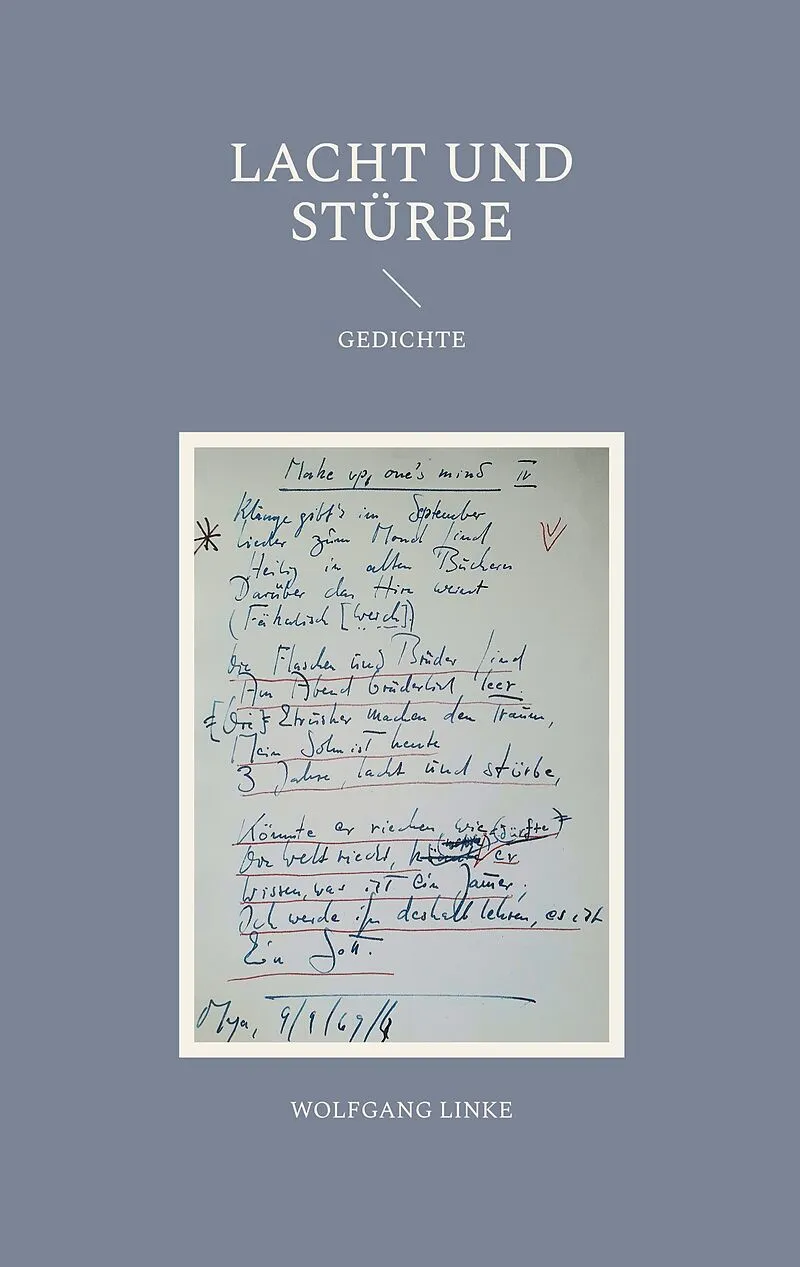 LACHT UND
STÜRBE
GEDICHTE
Make up, one's mind IV
Klänge gibt's im September
Lieder zum Mond sind
Heilig in alten Büchern
Darüber das Hirn weint
(Fäkalisch [weich])
Die Flaschen und Brüder sind
Am Abend brüderlich leer.
{Die} Etrusker machen den Traum,
Mein Sohn ist heute
3 Jahre, lacht und stürbe,
Könnte er riechen, wie
Die Welt riecht, er
Wissen, was ist ein Jamer;
Ich werde ihn deshalb lehren, es ist
Ein Gott.
9/9/69/
WOLFGANG LINKE